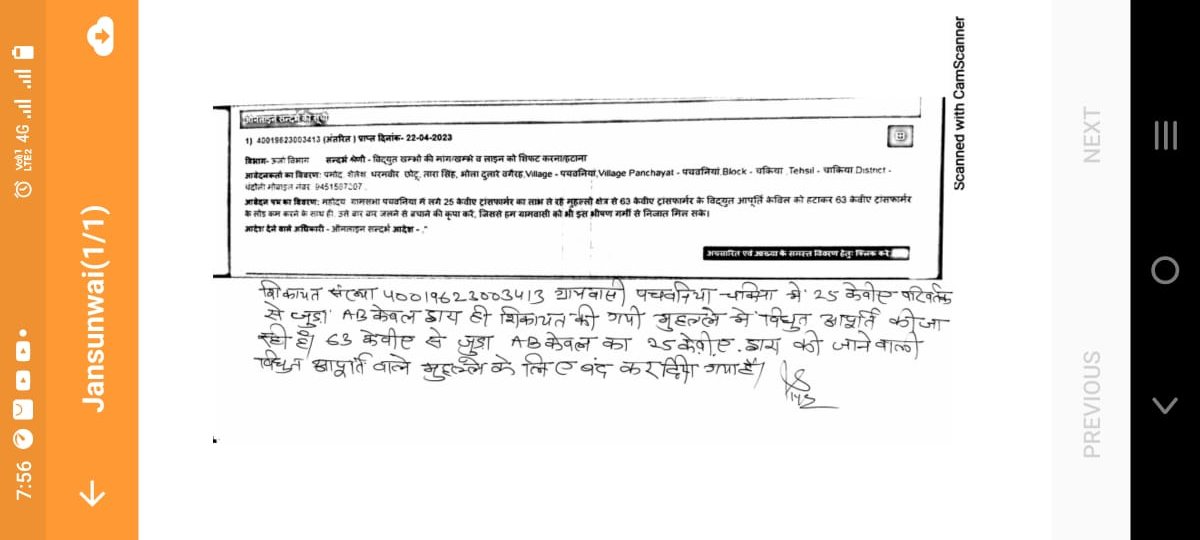 7:56
VoI) LTE2 4G
Jansunwai(1/1)
ऑनलाइन सन्दर्भ की सूची
1) 40019623003413 (अंतरित ) प्राप्त दिनांक- 22-04-2023
विभाग- ऊर्जा विभाग सन्दर्भ श्रेणी - विद्युत खम्भों की मांग/खम्भे व लाइन को शिफट करना/हटाना
आवेदनकर्ता का विवरण: प्रमोद शैलेश धरमवीर छोटू, तारा सिंह, भोला दुलारे वगैरह,Village - पचवनियां,Village Panchayat - पचवनियां,Block - चकिया ,Tehsil - चाकिया District -
चंदौली मोबाइल नंबर
आवेदन पत्र का विवरण: महोदय ग्रामसभा पचवनिया मे लगे 25 केवीए ट्रांसफार्मर का लाभ ले रहे मुहल्लो क्षेत्र से 63 केवीए ट्रांसफार्मर के विद्युत आपूर्ति केबिल को हटाकर 63 केवीए ट्रांसफार्मर
के लोड कम करने के साथ ही उसे बार बार जलने से बचाने की कृपा करे, जिससे हम ग्रामवासी को भी इस भीषण गर्मी से निजात मिल सके।
आदेश देने वाले अधिकारी - ऑनलाइन सन्दर्भ आदेश - ."
अग्रसारित एवं आख्या के समस्त विवरण हेतु क्लिक करे
शिकायत संख्या 40019623003413 ग्रामवासी पचवनिया चकिया में 25 केवीए परिवर्तक
से जुड़ा AB केबल द्वारा ही शिकायत की गयी मुहल्ले में विधुत आपूर्ति की जा
रही है। 63 केवीए से जुड़ा AB केबल का 25 केवीए. द्वारा की जाने वाली
विधुत आपूर्ति वाले मुहल्ले के लिए बंद कर दिया गया है।
Scanned with CamScanner
PREVIOUS
NEXT